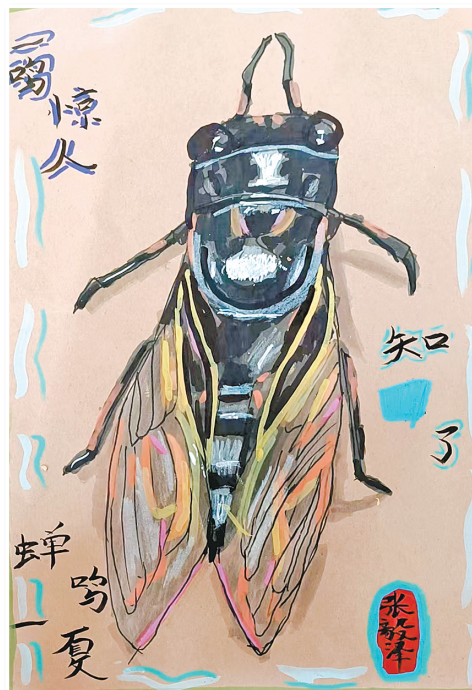 一鸣惊人
知了
蝉鸣一夏
张毅泽